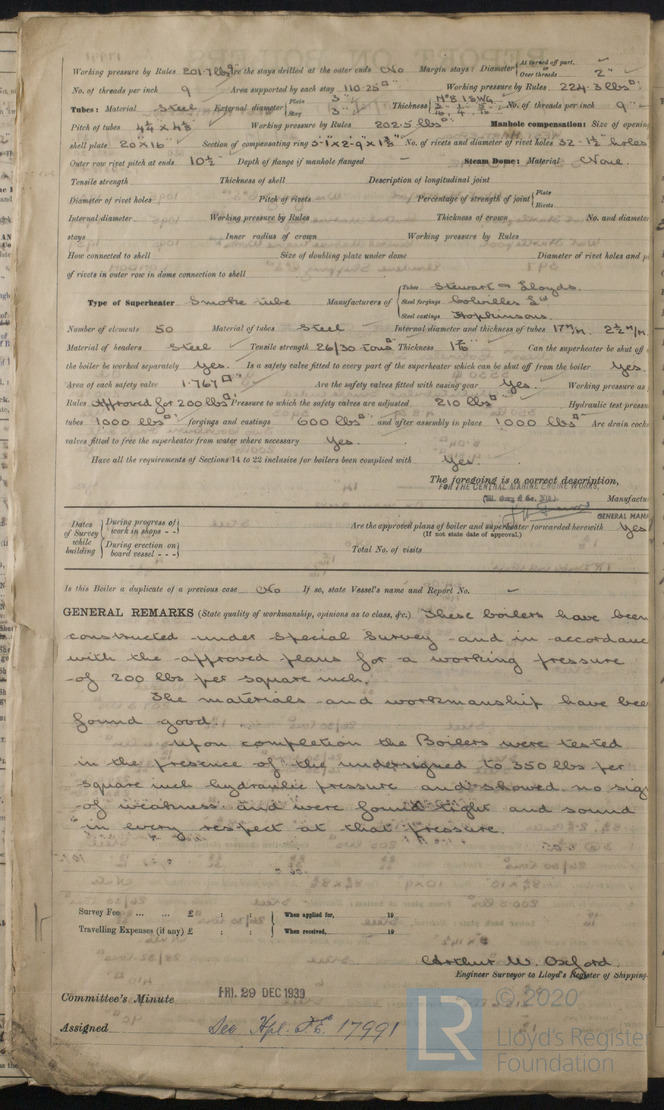 Working pressure by Rules 201.7 lbs Are the stays drilled at the outer ends No Margin stays: Diameter { At turned off part, or Over threads 2"
No. of threads per inch 9 Area supported by each stay 110.25 Working pressure by Rules 224.3 lbs
Tubes: Material Steel External diameter { Plain 3" Stay 3" Thickness { No 8 I.S.W.G. No. of threads per inch 9
Pitch of tubes Working pressure by Rules 202.5 lbs Manhole compensation: Size of opening
shell plate 20 x 16 Section of compensating ring No. of rivets and diameter of rivet holes 32 - 1½ holes
Outer row rivet pitch at ends 10½ Depth of flange if manhole flanged — Steam Dome: Material None.
Tensile strength Thickness of shell Description of longitudinal joint
Diameter of rivet holes Pitch of rivets Percentage of strength of joint { Plate Rivets
Internal diameter Working pressure by Rules Thickness of crown No. and diameter
stays Inner radius of crown Working pressure by Rules
How connected to shell Size of doubling plate under dome Diameter of rivet holes and
of rivets in outer row in dome connection to shell
Type of Superheater Smoke tube Manufacturers of { Tubes Stewart & Lloyds.
Steel forgings Colvilles Ld
Steel castings Hopkinsons.
Number of elements 50 Material of tubes Steel Internal diameter and thickness of tubes 17 m/m. 2½ m/m
Material of headers Steel Tensile strength 26/30 tons Thickness Can the superheater be shut off
the boiler be worked separately Yes. Is a safety valve fitted to every part of the superheater which can be shut off from the boiler Yes.
Area of each safety valve 1.767 Are the safety valves fitted with easing gear Yes. Working pressure as
Rules Approved for 200 lbs Pressure to which the safety valves are adjusted 210 lbs Hydraulic test pressure
tubes 1000 lbs forgings and castings 600 lbs and after assembly in place 1000 lbs Are drain cocks
valves fitted to free the superheater from water where necessary Yes.
Have all the requirements of Sections 14 to 22 inclusive for boilers been complied with Yes.
The foregoing is a correct description,
FOR THE CENTRAL MARINE ENGINE WORKS,
(Wm. Gray & Co. Ltd.) Manufactu
GENERAL MAN
Dates of Survey while building { During progress of work in shops - - Are the approved plans of boiler and superheater forwarded herewith Yes
(If not state date of approval.)
During erection on board vessel - - - Total No. of visits
Is this Boiler a duplicate of a previous case No If so, state Vessel's name and Report No. —
GENERAL REMARKS (State quality of workmanship, opinions as to class, &c.) These boilers have been
constructed under Special Survey and in accordance
with the approved plans for a working pressure
of 200 lbs per square inch.
The materials and workmanship have been
found good.
Upon completion the Boilers were tested
in the presence of the undersigned to 350 lbs per
square inch hydraulic pressure and showed no sign
of weakness and were found tight and sound
in every respect at that pressure.
Survey Fee ... ... £ : : When applied for, 19
Travelling Expenses (if any) £ : : When received, 19
Arthur W. Oxford.
Engineer Surveyor to Lloyd's Register of Shipping
Committee's Minute FRI. 29 DEC 1939
Assigned See Hpl. F.E. 17991
© 2020
LR Lloyd's Register
Foundation